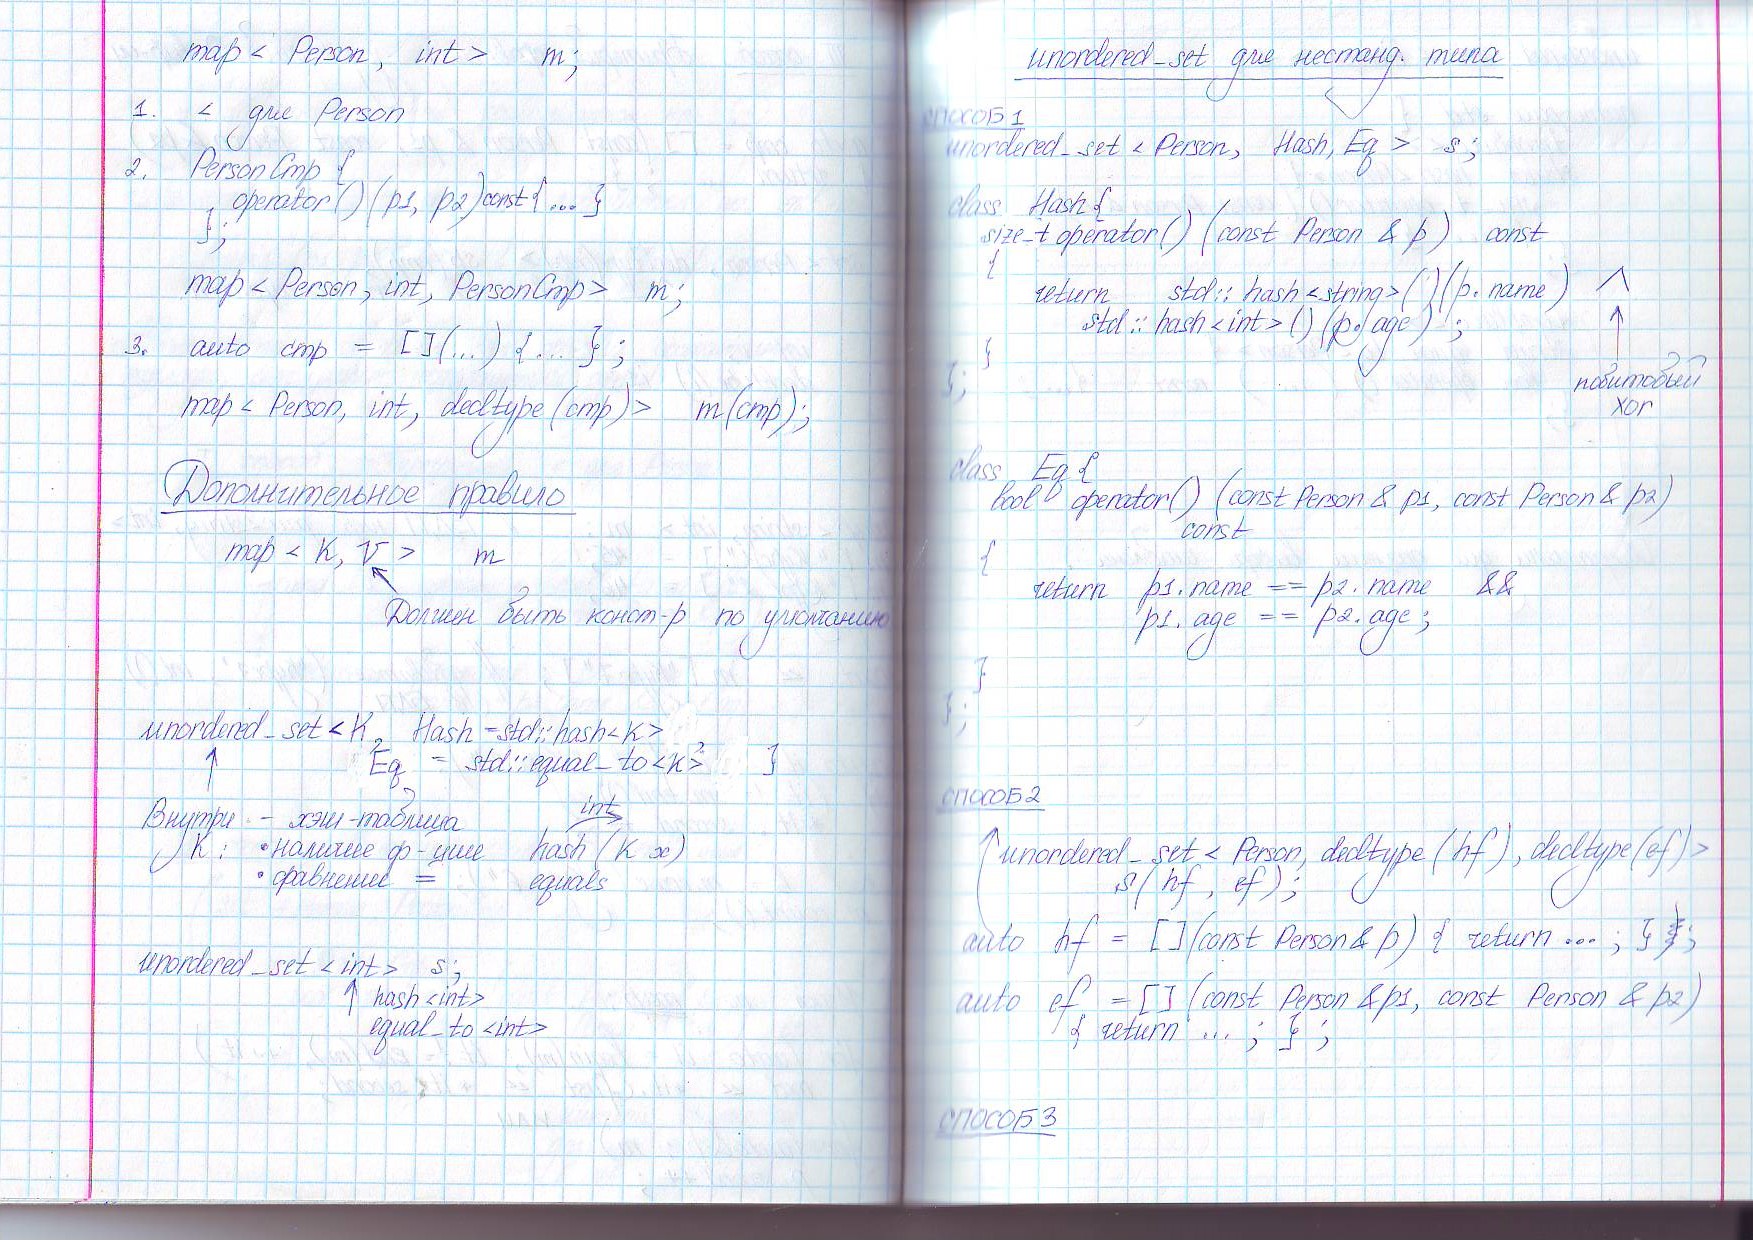 map < Person, int > m;
1. < для Person
2. PersonCmp {
operator()(p1, p2)const{...}
};
map < Person, int, PersonCmp > m;
3. auto cmp = [](...) {...};
map < Person, int, decltype(cmp) > m(cmp);
Дополнительное правило
map < K, V > m
Должен быть конст-р по умолчанию
unordered_set < K, Hash = std::hash<K>,
Eq = std::equal_to<K> }
Внутри - хэш-таблица
int
K: • наличие ф-ции hash(K x)
• сравнение = equals
unordered_set <int> s;
hash<int>
equal_to <int>
unordered_set для нестанд. типа
СПОСОБ 1
unordered_set < Person, Hash, Eq > s;
class Hash {
size_t operator() (const Person & p) const
{
return std:: hash <string> ()(p. name) ^
std:: hash <int> () (p. age) ;
}
};
побитовый
xor
class Eq {
bool operator() (const Person & p1, const Person & p2)
const
{
return p1. name == p2. name &&
p1. age == p2. age;
}
};
СПОСОБ 2
unordered_set < Person, decltype (hf), decltype(ef) >
s( hf, ef);
auto hf = [](const Person & p) { return ...; };
auto ef = [] (const Person & p1, const Person & p2)
{ return ...; };
СПОСОБ 3